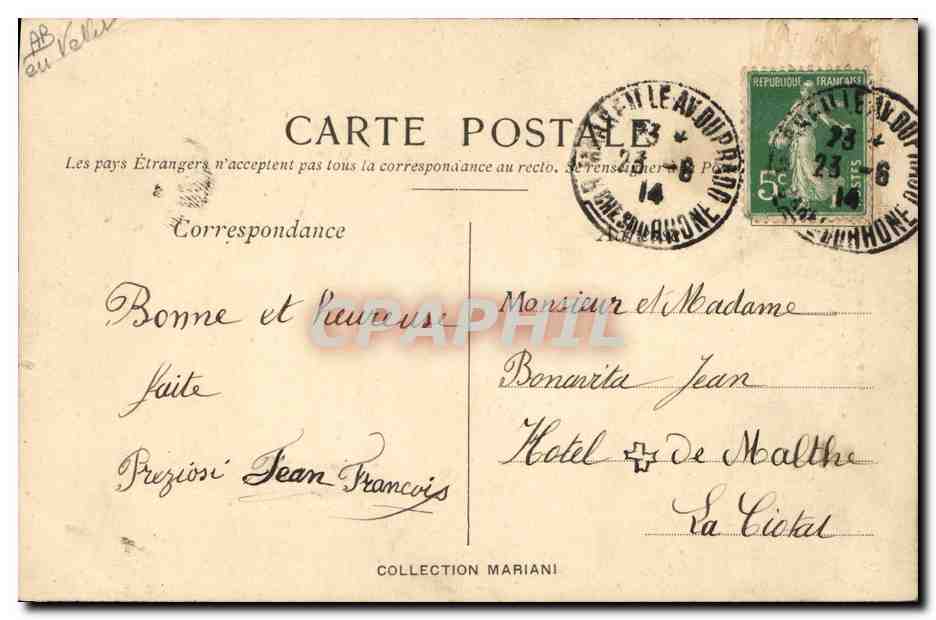 AB
en
CARTE POSTALE
Les pays Étrangers n'acceptent pas tous la correspondance au recto. Se renseigner à la Poste
RÉPUBLIQUE FRANÇAISE
5c
POSTES
MARSEILLE AV. DU PRADO
23 *
23 - 6
14
BCHES DU RHONE
23 *
23 - 6
14
Correspondance
Bonne et heureuse
faite
Preziosi Jean François
Monsieur et Madame
Bonavita Jean
Hotel de Malthe
La Ciotat
CPAPHIL
COLLECTION MARIANI